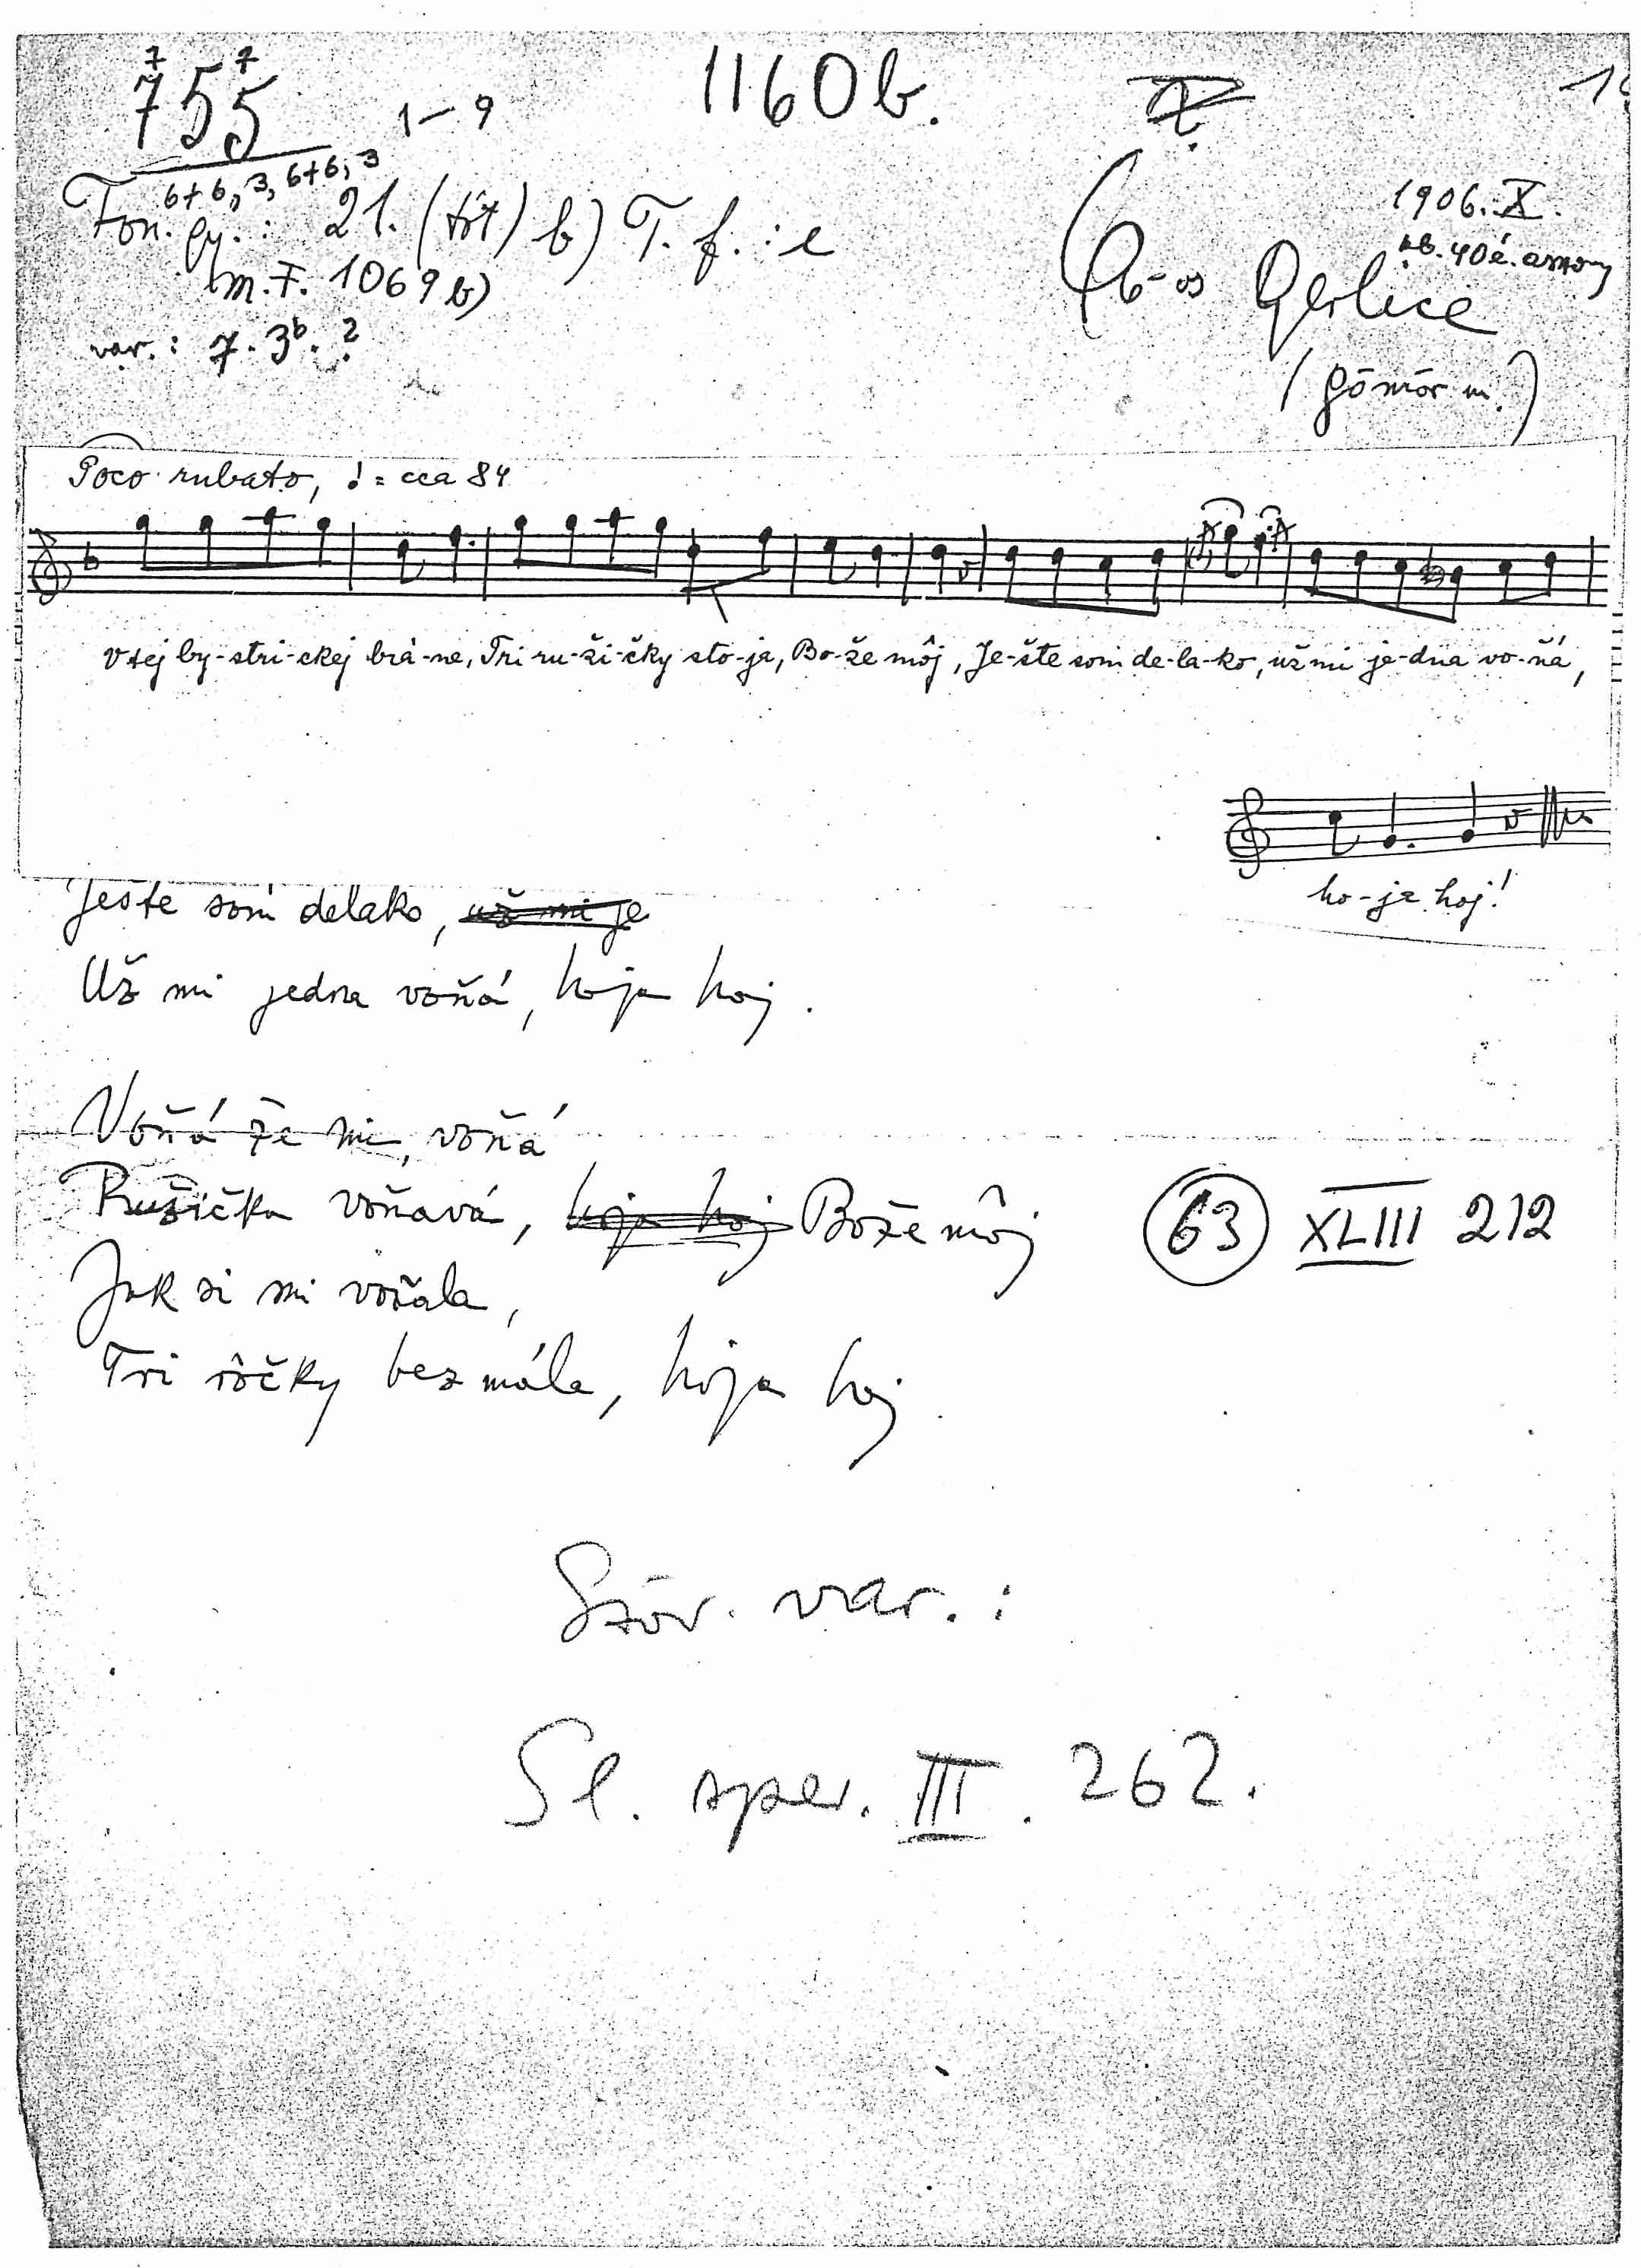 7 7
755 1–9 1160b.
6+6, 3, 6+6, 3
Fon. gy.: 21. (tót) b) T. f.: e
1906. X.
kb. 40 é. asszony
(M. F. 1069 b)
Gerlice
var.: 7. 3b. 2
(Gömör m.)
Poco rubato, ♩ = cca 84
V tej by-stri-ckej brá-ne, Tri ru-ži-čky sto-ja, Bo-že môj, Je-šte som de-la-ko, už mi je-dna vo-ňá,
ho-ja hoj!
Ješte som delako, už mi je
Už mi jedna voňá, hoja hoj.
Voňá že mi, voňá
Ružička voňavá, hoja hoj Bože môj
63 XLIII 212
Jak si mi voňala,
Tri rôčky bezmála, hoja hoj.
Szöv. var.:
Sl. spev. III. 262.